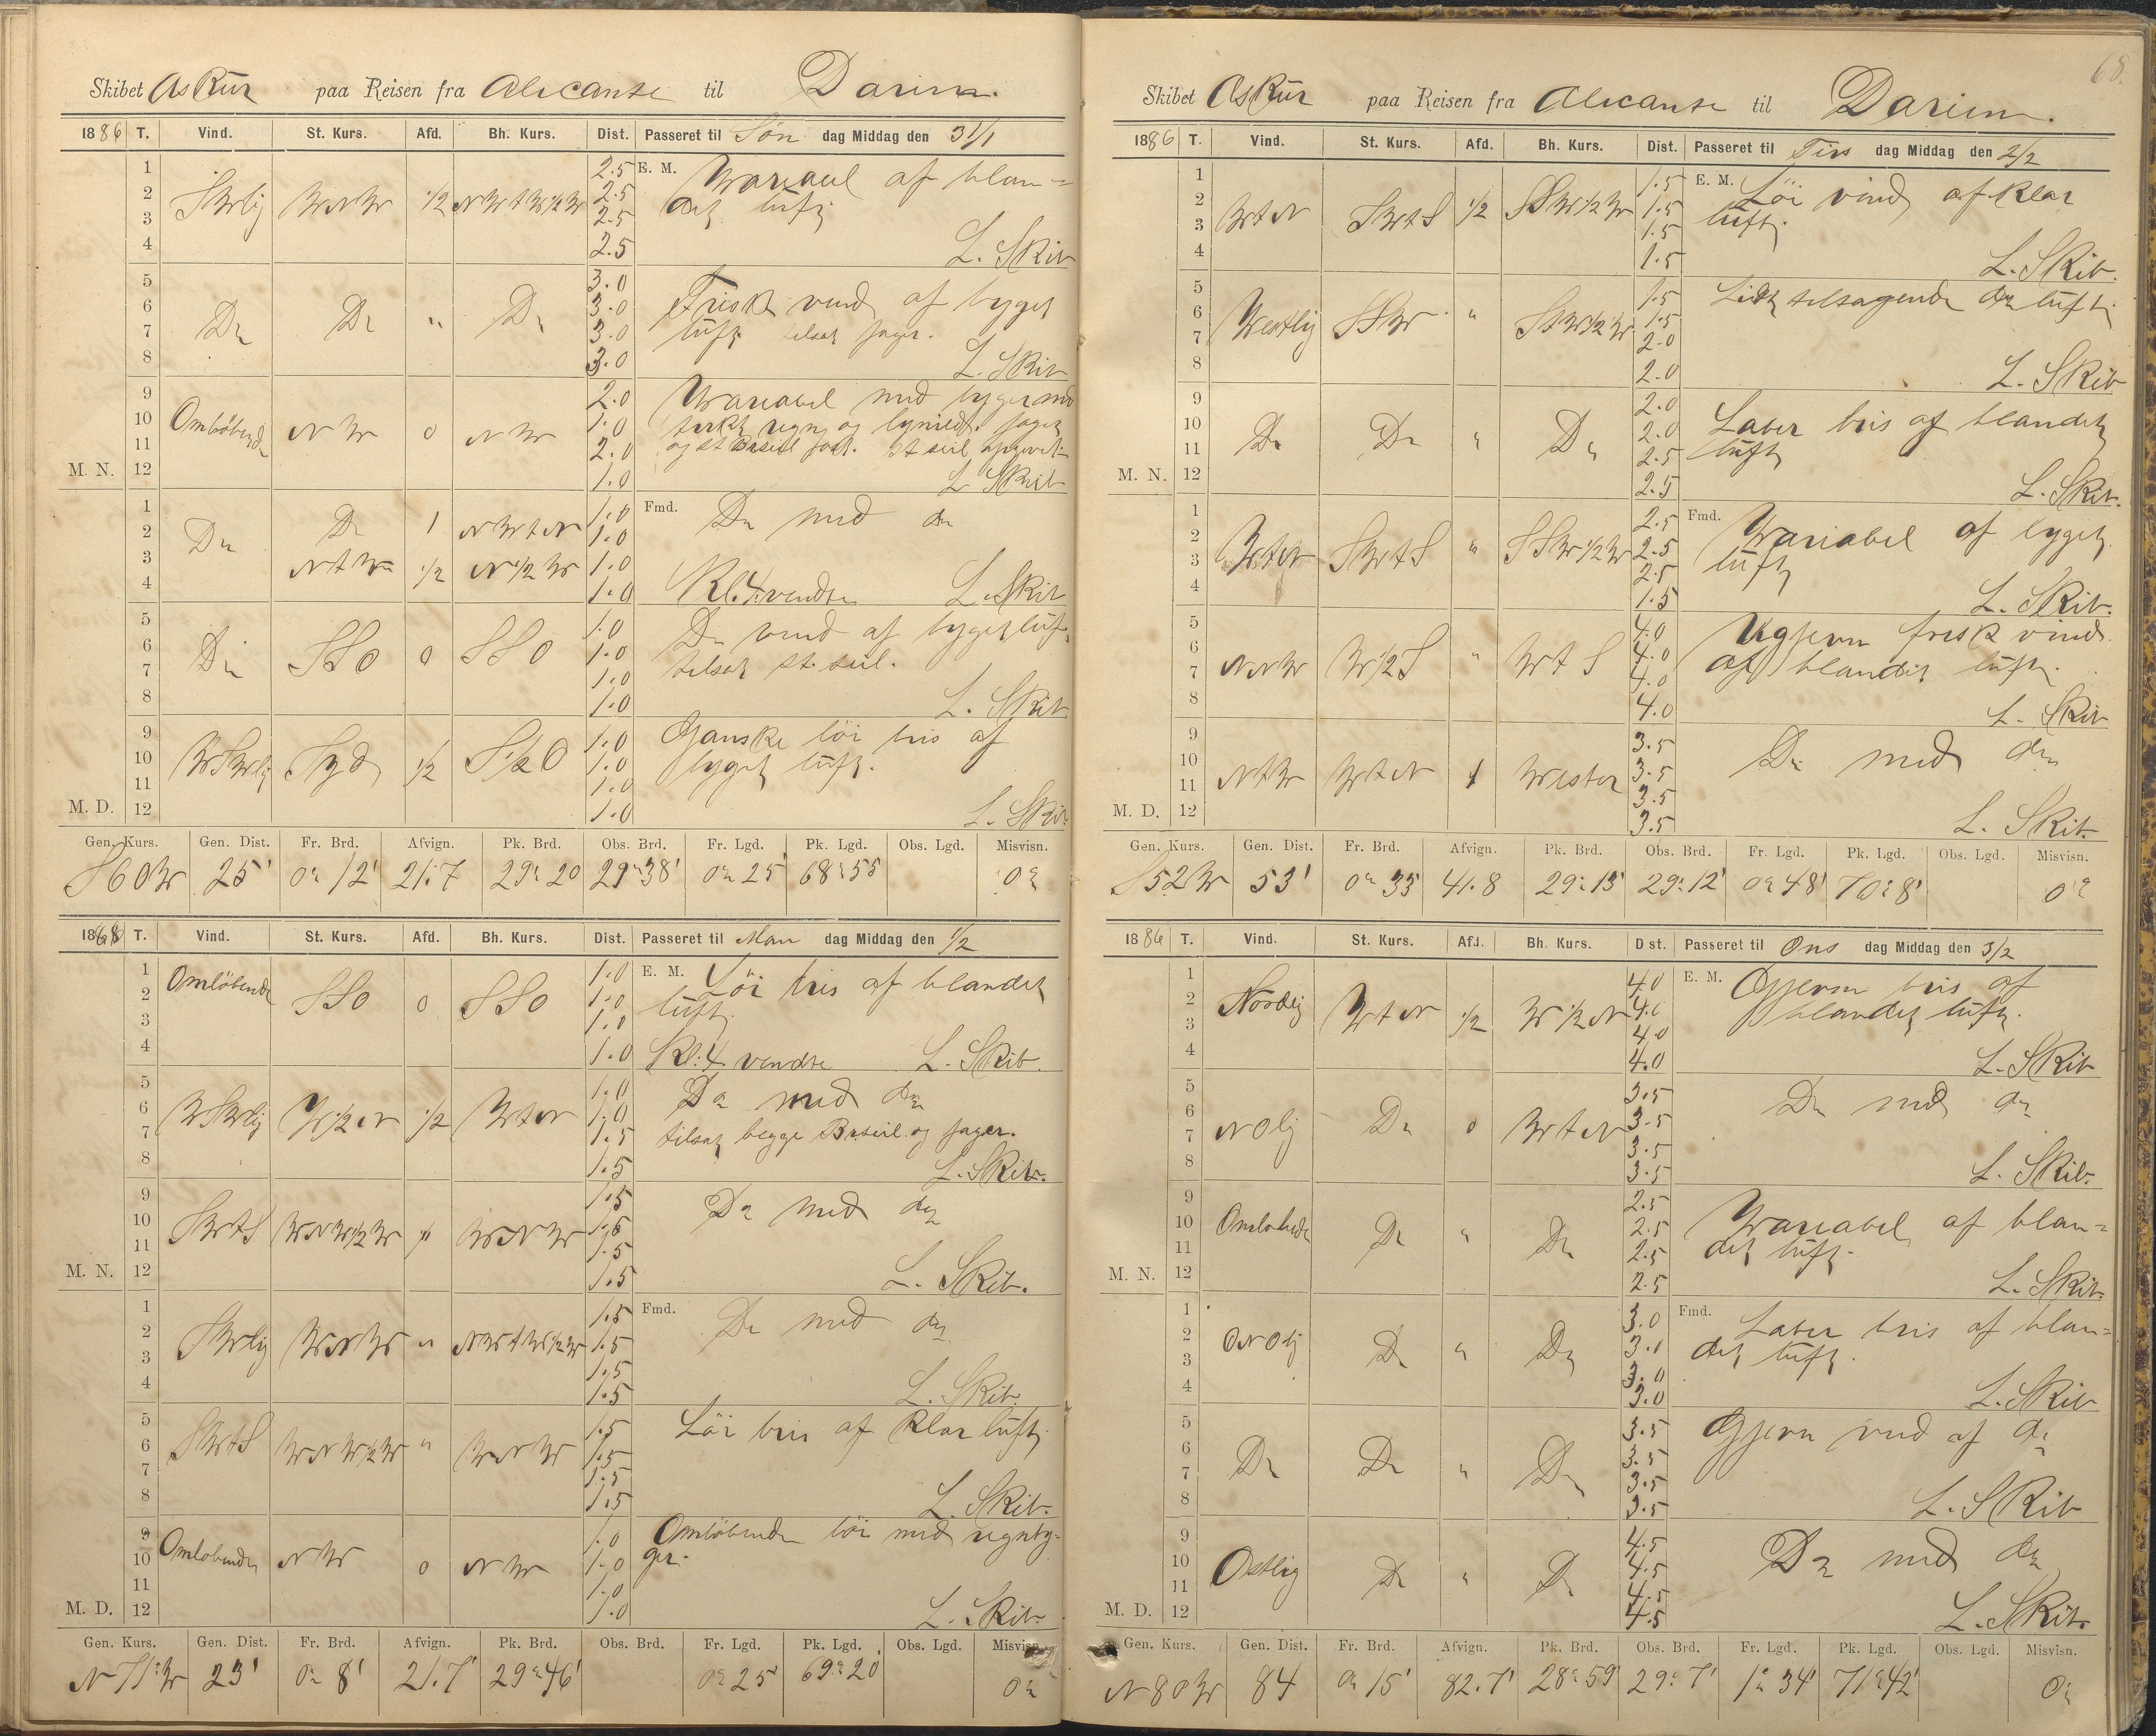 Skibet Askur paa Reisen fra Alicante til Darien.
1886 T. Vind. St. Kurs. Afd. Bh. Kurs. Dist. Passeret til Søn dag Middag den 31/1
1 2.5 E. M. Variabel af blan=
2 SWlig WNW 1/2 NWtW1/2W 2.5 det luft
3 2.5
4 2.5 L. Skib
5 3.0
6 Do Do " Do 3.0 Frisk vind af byget
7 3.0 luft tilsat jager.
8 3.0 L. Skib
9 2.0 Variabel med byger med
10 Omløbende NW 0 NW 1.0 stærkt regn og lynild. jager
11 2.0 og st Brseil fast. st seil opgivet
M. N. 12 1.0 L Skib
1 Do 1 NWtN 1.0 Fmd. Do med do
2 Do 1.0
3 NtW 1/2 N1/2W 1.0
4 1.0 Kl. 4 vendte L. Skib
5 1.0 Do vind af byget luft
6 Do SSO 0 SSO 1.0 tilsat st. seil.
7 1.0
8 1.0 L. Skib
9 1.0 Ganske løi bris af
10 WSWlig Syd 1/2 S1/2O 1.0 byget luft.
11 1.0
M. D. 12 1.0 L. Skib
Gen. Kurs. Gen. Dist. Fr. Brd. Afvign. Pk. Brd. Obs. Brd. Fr. Lgd. Pk. Lgd. Obs. Lgd. Misvisn.
S60W 25' 0° 12' 21.7 29° 20 29° 38' 0° 25' 68° 55 0°
18 T. Vind. St. Kurs. Afd. Bh. Kurs. Dist. Passeret til Man dag Middag den 1/2
1 Omløbende 1.0 E. M. Løi bris af blandet
2 SSO 0 SSO 1.0 luft.
3 1.0
4 1.0 Kl: 4 vendte L. Skib.
5 1.0 Do med do
6 WSWlig W1/2N 1/2 WtN 1.0
7 1.5 tilsat begge Brseil og jager.
8 1.5 L. Skib.
9 1.5 Do med do
10 SWtS WNW1/2W " WNW 1.5
11 1.5
M. N. 12 1.5 L. Skib.
1 1.5 Fmd. Do med do
2 SWlig WNW " NWtW1/2W 1.5
3 1.5
4 1.5 L. Skib.
5 1.5 Løi bris af klar luft
6 SWtS WNW1/2W " WNW 1.5
7 1.5
8 1.5 L. Skib.
9 1.0 Omløbende løi med regnby=
10 Omløbende NW 0 NW 1.0 ger.
11 1.0
M. D. 12 1.0 L. Skib.
Gen. Kurs. Gen. Dist. Fr. Brd. Afvign. Pk. Brd. Obs. Brd. Fr. Lgd. Pk. Lgd. Obs. Lgd. Misvisn.
N71°W 23' 0° 8' 21.7' 29° 46' 0° 25' 69° 20' 0°
68.
Skibet Askur paa Reisen fra Alicante til Darien.
1886 T. Vind. St. Kurs. Afd. Bh. Kurs. Dist. Passeret til Tirs dag Middag den 2/2
1 1.5 E. M. Løi vind af klar
2 WtN SWtS 1/2 SSW1/2W 1.5 luft.
3 1.5
4 1.5 L. Skib.
5 1.5 Lidt tiltagende do luft
6 Westlig SSW " StW1/2W 1.5
7 2.0
8 2.0 L. Skib
9 2.0 Laber bris af blandet
10 Do Do " Do 2.0 luft
11 2.5
M. N. 12 2.5 L. Skib.
1 2.5 Fmd. Variabel af byget
2 WtN SWtS " SSW1/2W 2.5 luft
3 2.5
4 1.5 L. Skib.
5 4.0 Ugjevn frisk vind
6 NNW W1/2S " WtS 4.0 af blandet luft.
7 4.0
8 4.0 L. Skib
9 3.5 Do med do
10 NtW WtN 1 Wester 3.5
11 3.5
M. D. 12 3.5 L. Skib.
Gen. Kurs. Gen. Dist. Fr. Brd. Afvign. Pk. Brd. Obs. Brd. Fr. Lgd. Pk. Lgd. Obs. Lgd. Misvisn.
S52W 53' 0° 33' 41.8 29° 13' 29° 12' 0° 48' 70° 8' 0°
1886 T. Vind. St. Kurs. Afd. Bh. Kurs. Dist. Passeret til Ons dag Middag den 3/2
1 4.0 E. M. Gjevn bris af
2 Nordlig WtN 1/2 W1/2N 4.0 blandet luft.
3 4.0
4 4.0 L. Skib
5 3.5 Do med do
6 NOlig Do 0 WtN 3.5
7 3.5
8 3.5 L. Skib.
9 2.5 Variabel af blan=
10 Omløbende Do " Do 2.5 det luft.
11 2.5
M. N. 12 2.5 L. Skib.
1 3.0 Fmd. Laber bris af blan=
2 ONOlig Do " Do 3.0 det luft.
3 3.0
4 3.0 L. Skib
5 3.5 Gjevn vind af do
6 Do Do " Do 3.5
7 3.5
8 3.5 L. Skib
9 4.5 Do med do
10 Ostlig Do " Do 4.5
11 4.5
M. D. 12 4.5 L. Skib.
Gen. Kurs. Gen. Dist. Fr. Brd. Afvign. Pk. Brd. Obs. Brd. Fr. Lgd. Pk. Lgd. Obs. Lgd. Misvisn.
N80W 84 0° 15' 82.7' 28° 59' 29° 7' 1° 34' 71° 42' 0°